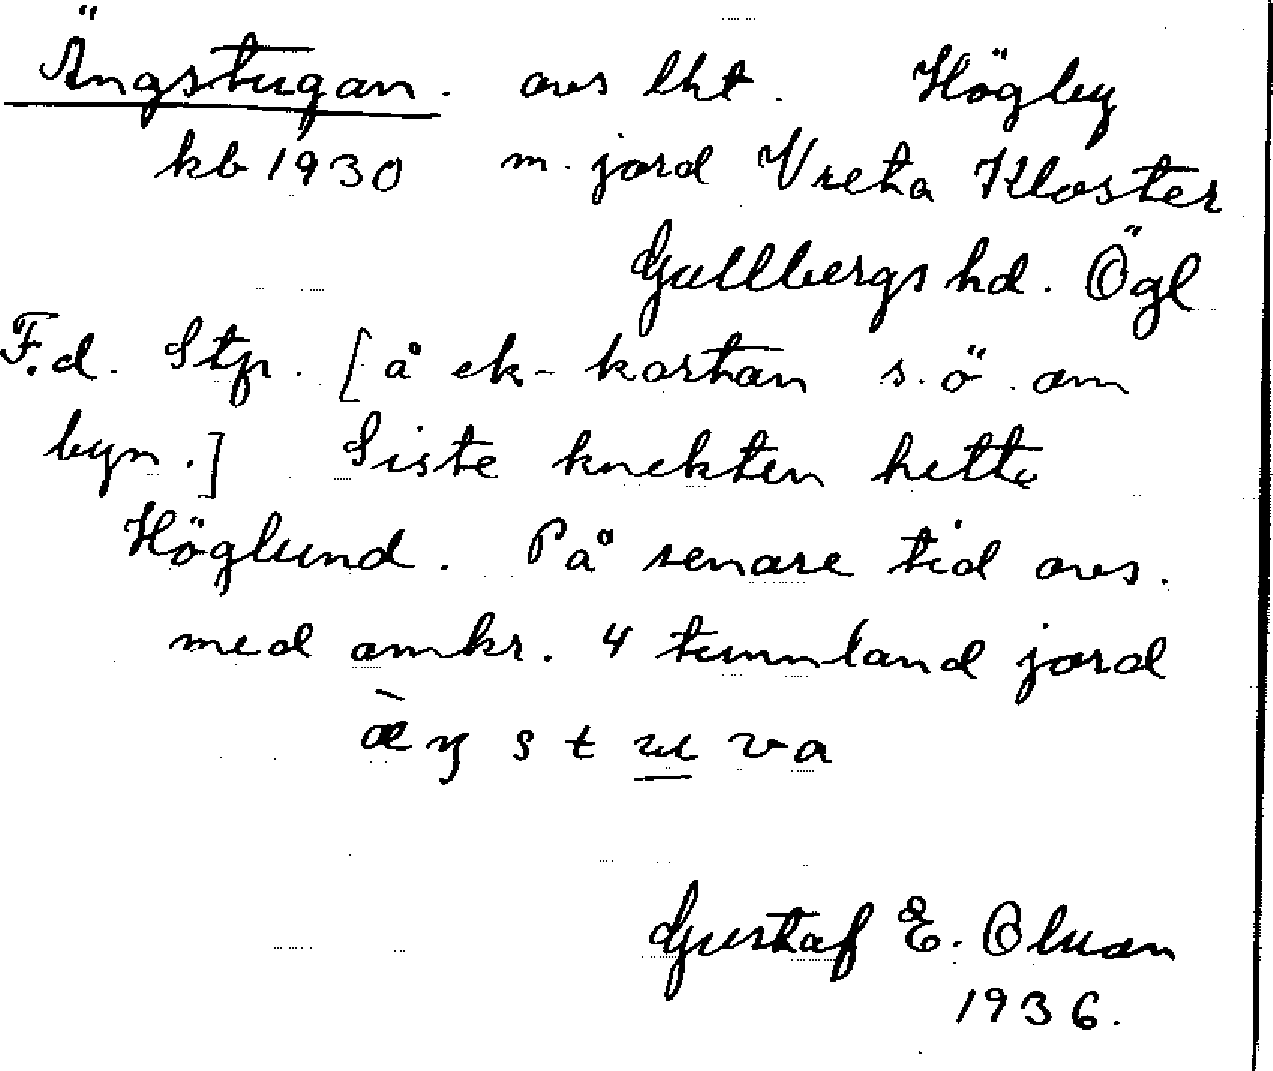 Ängstugan. avs lht. Högby
kb 1930 m. jord Vreta Kloster
Gullbergs hd. Ögl
F.d. Stp. [å ek-kartan s.ö. om
byn.] Siste knekten hette
Höglund. På senare tid avs.
med omkr. 4 tunnland jord
æ̀ŋstuva
Gustaf E. Olsson
1936.